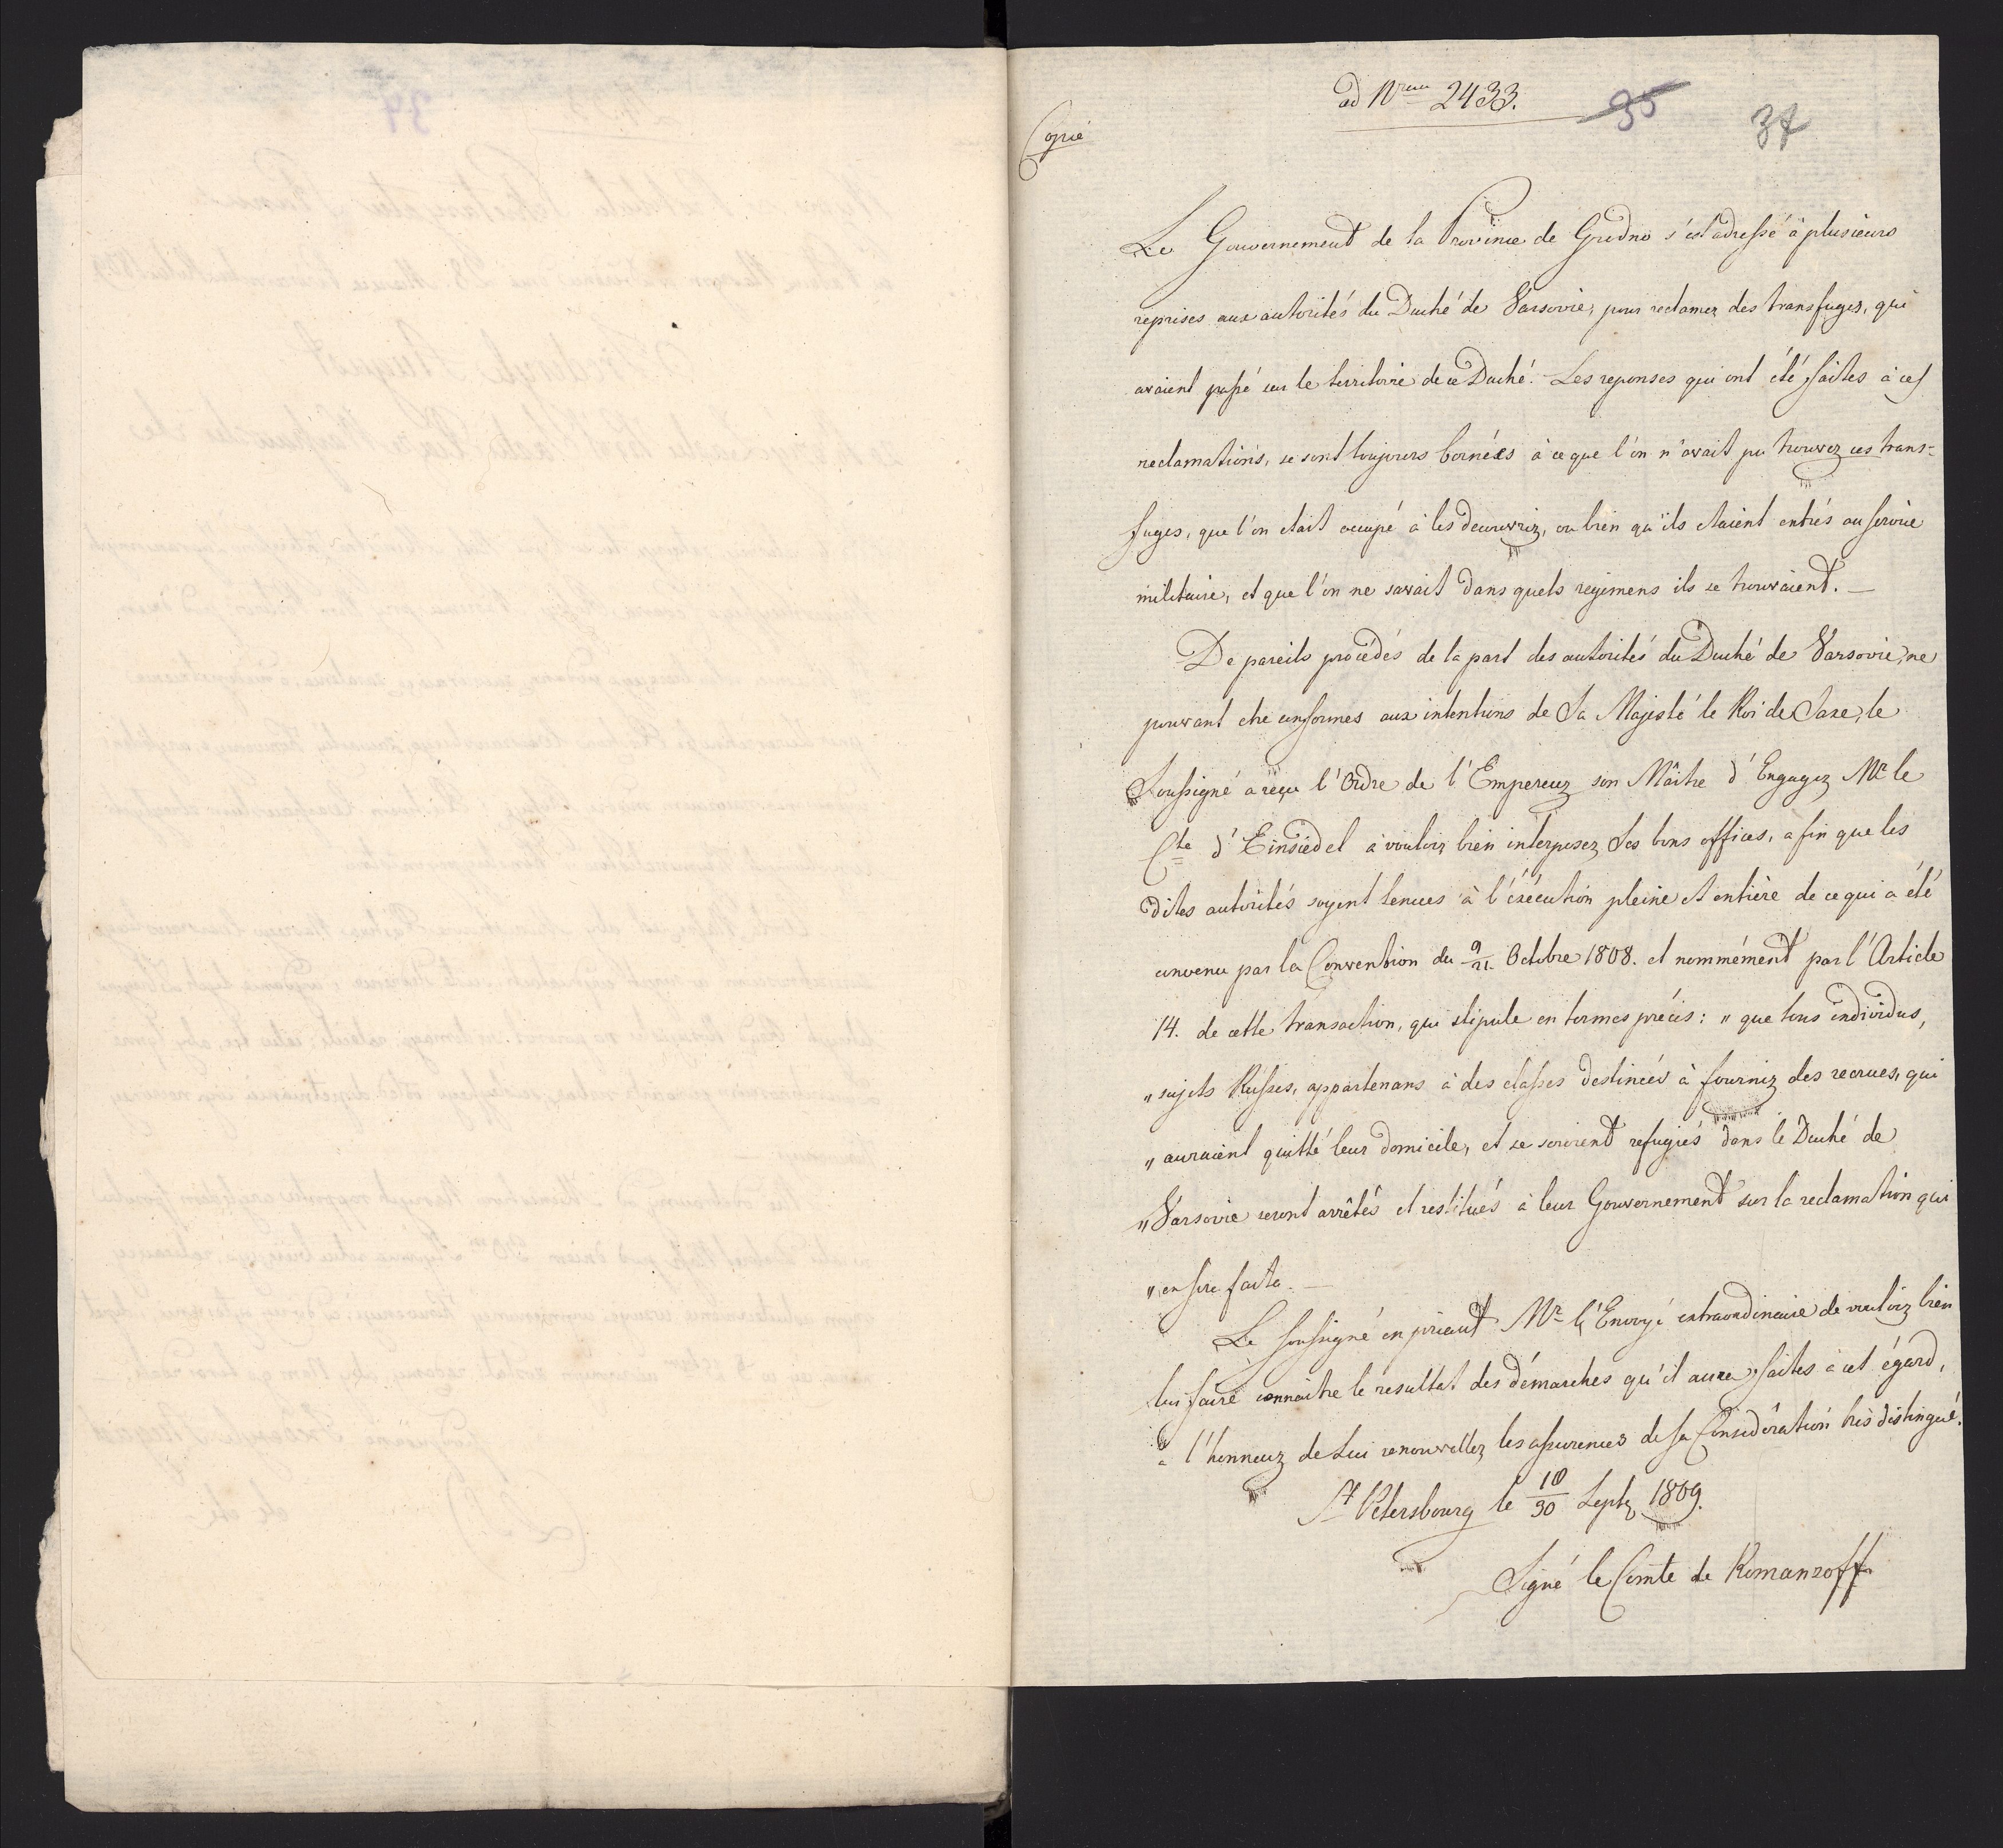 ad Nrum 2433.
35
37
Copie
Le Gouvernement de la Province de Grodno s'est adressé à plusieurs
reprises aux autorités du Duché de Varsovie, pour reclamer des transfuges, qui
avaient passé sur le territoire de ce Duché. Les reponses qui ont été faites à ces
reclamations, se sont toujours bornées à ce que l'on n'avait pu trouver ces trans-
fuges, que l'on etait occupé à les decouvrir, ou bien qu'ils etaient entrés au service
militaire, et que l'on ne savait dans quels regimens ils se trouvaient. —
De pareils procedés de la part des autorités du Duché de Varsovie, ne
pouvant etre conformes aux intentions de Sa Majesté le Roi de Saxe, le
Soussigné a reçu l'Ordre de l'Empereur son Maître d'Engager Mr le
Cte d'Einsiedel à vouloir bien interposer Ses bons offices, a fin que les
dites autorités soyent tenues à l'exécution pleine et entière de ce qui a été
convenu par la Convention du 9/21. Octobre 1808. et nommément par l'Article
14. de cette transaction, qui stipule en termes précis: „ que tous individus,
„ sujets Russes, appartenans à des classes destinées à fournir des recrues, qui
„ auraient quitté leur domicile, et se seroient refugiés dans le Duché de
„ Varsovie seront arrêtés et restitués à leur Gouvernement sur la reclamation qui
„ en sera faite. —
Le soussigné en priant Mr l'Envoyé extraordinaire de vouloir bien
lui faire connaitre le resultat des démarches qu'il aura faites à cet égard,
a l'honneur de Lui renouveller les assurances de sa Considération très distinguée.
St Petersbourg le 18/30 Septr 1809.
Signé le Comte de Romanzoff.